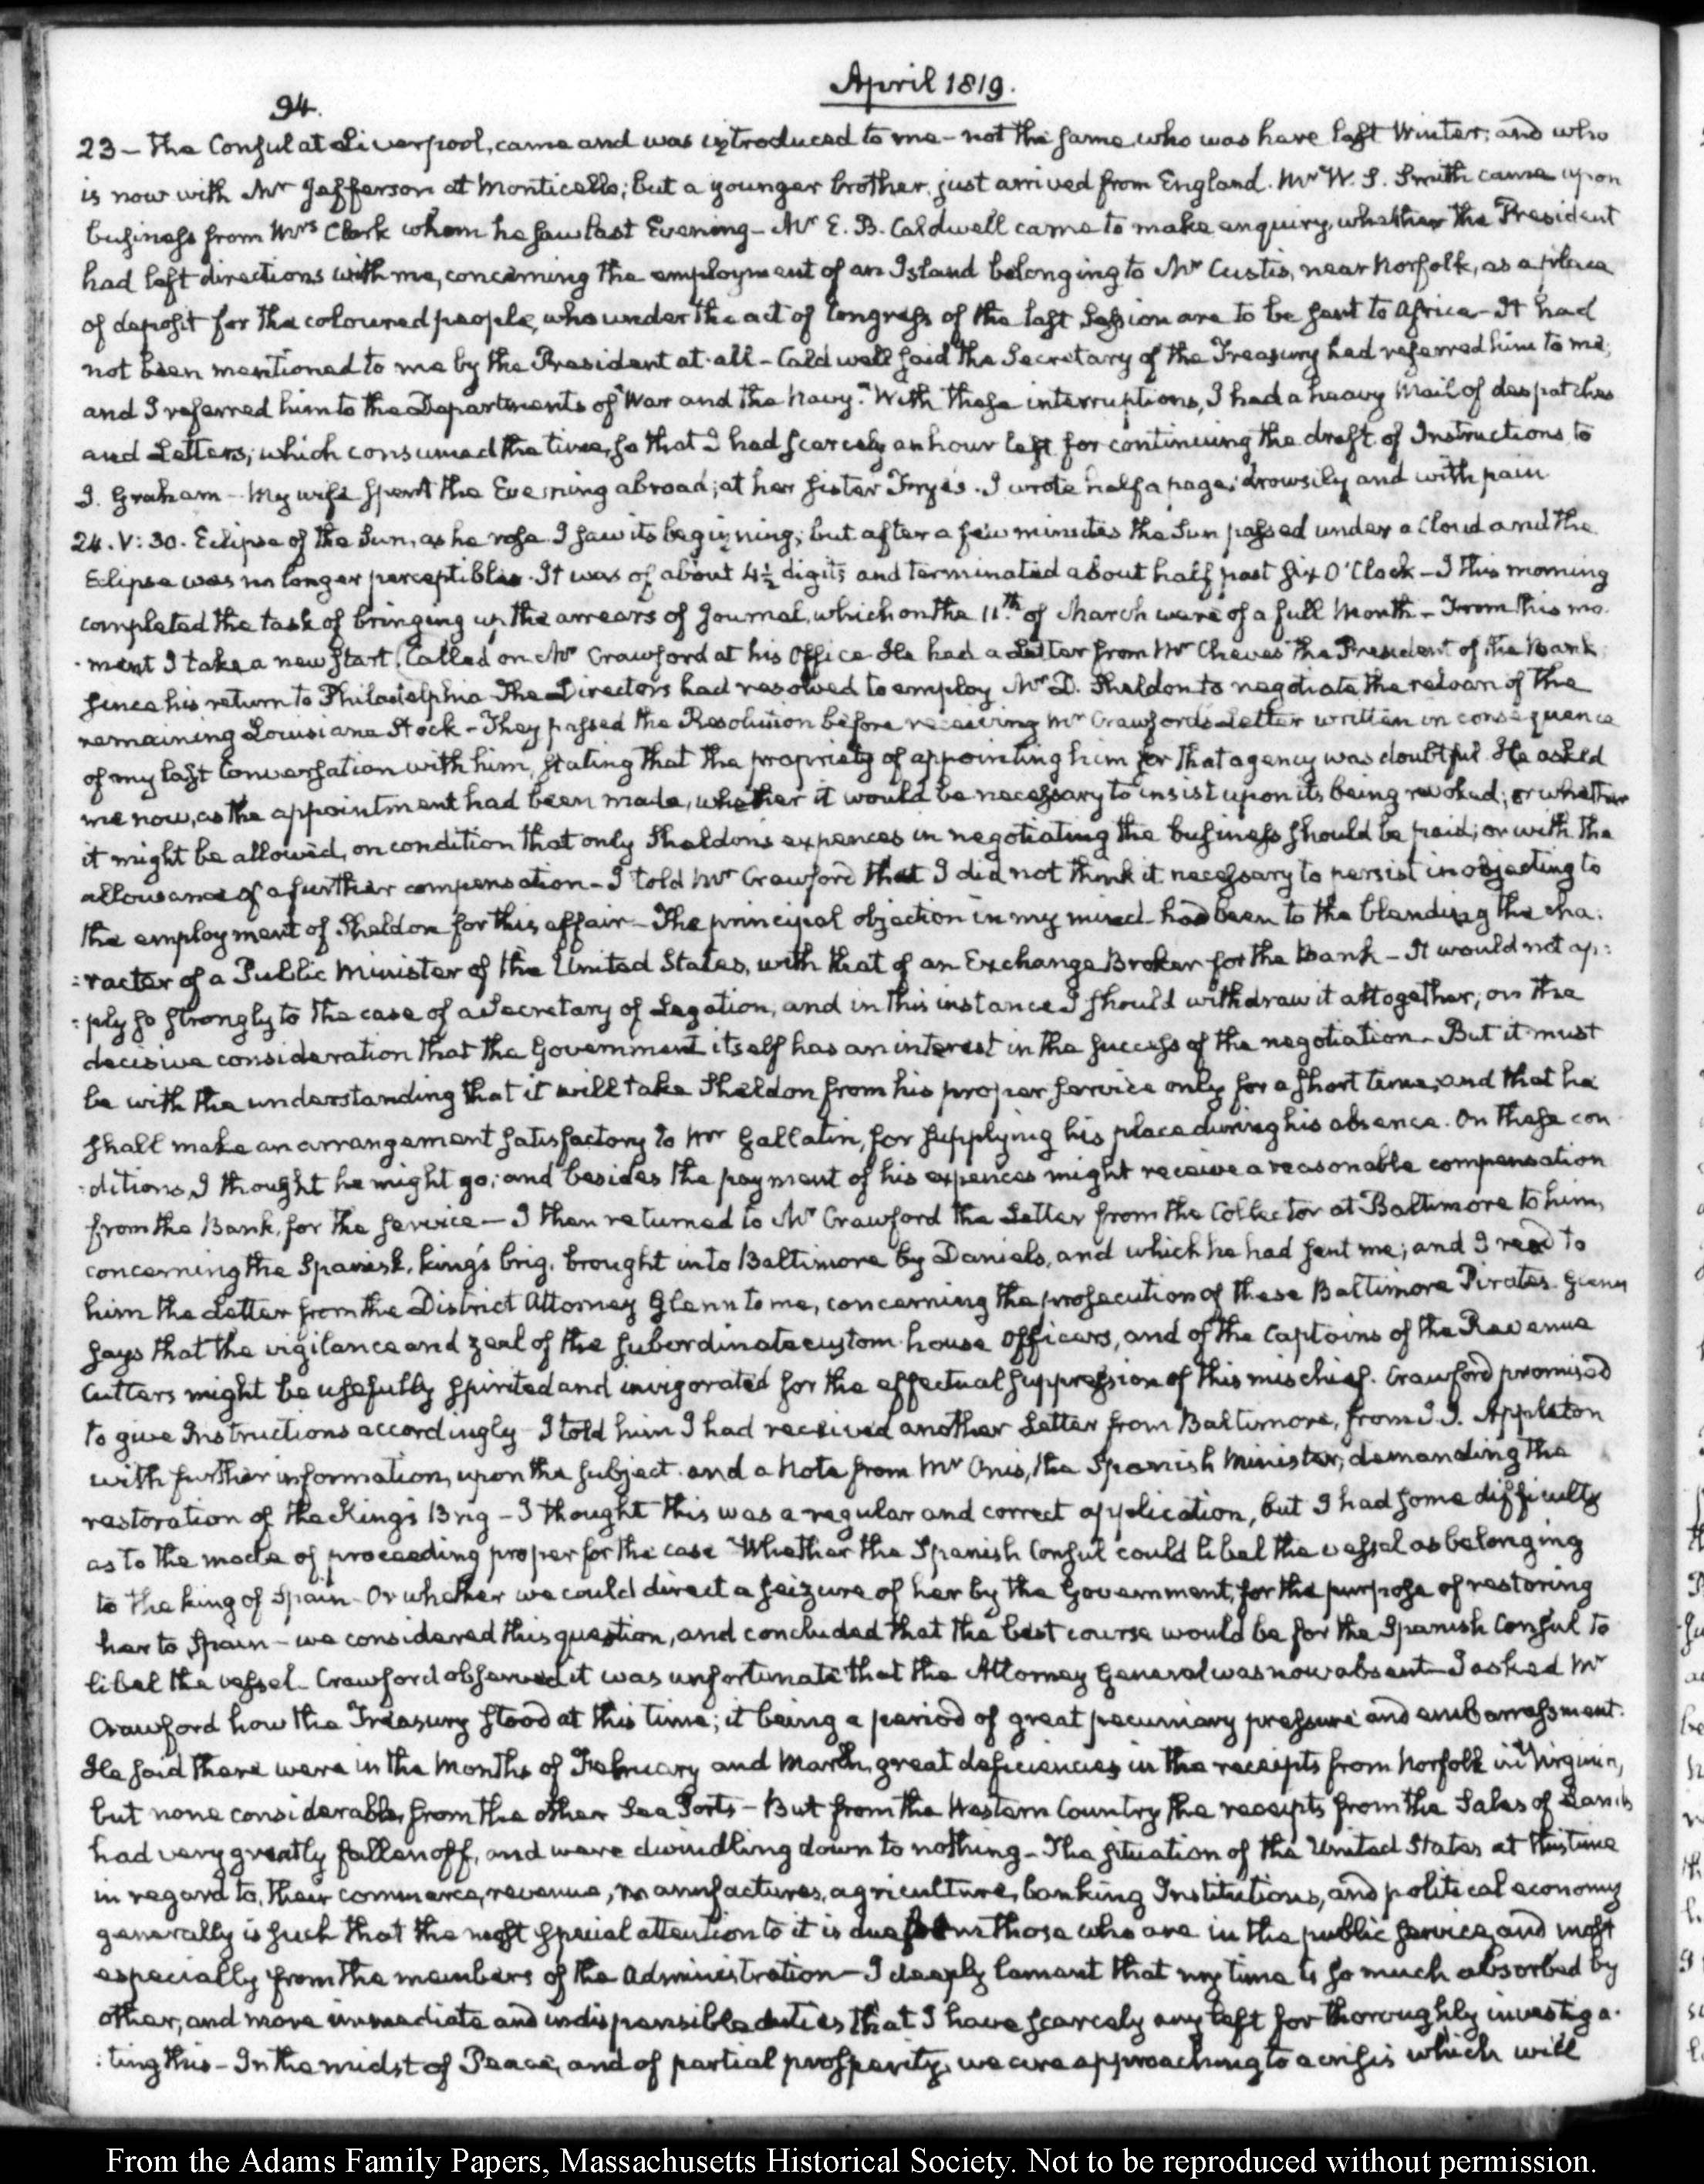 April 1819.
94.
23 – the Consul at Liverpool, came and was introduced to me – not the same, who was here last Winter; and who
is now with Mr Jefferson at Monticello; but a younger brother, just arrived from England. Mr W. S. Smith came upon
business from Mrs Clark whom he saw last Evening – Mr E. B. Caldwell came to make enquiry, whether the President
had left directions with me, concerning the employment of an Island belonging to Mr Custis, near Norfolk, as a place
of deposit for the coloured people, who under the act of Congress of the last Session are to be sent to Africa – It had
not been mentioned to me by the President at all – Caldwell said the Secretary of the Treasury had referred him to me;
and I referred him to the Departments of War and the Navy. With these interruptions, I had a heavy Mail of despatches
and Letters; which consumed the time, so that I had scarcely an hour left for continuing the draft of Instructions to
J. Graham – My wife spent the Evening abroad; at her sister Frye's. I wrote half a page; drowsily and with pain.
24. V: 30. Eclipse of the Sun, as he rose. I saw its beginning; but after a few minutes the Sun passed under a Cloud and the
Eclipse was no longer perceptible. It was of about 4½ digits and terminated about half past six O'Clock – I this morning
completed the task of bringing up the arrears of Journal, which on the 11th of March were of a full Month – From this mo-
-ment I take a new start. Called on Mr Crawford at his Office. He had a Letter from Mr Cheves the President of the Bank
since his return to Philadelphia. The Directors had resolved to employ Mr D. Sheldon to negotiate the reloan of the
remaining Louisiana Stock – They passed the Resolution before receiving Mr Crawford's Letter written in consequence
of my last Conversation with him, stating that the propriety of appointing him for that agency was doubtful. He asked
me now, as the appointment had been made, whether it would be necessary to insist upon its being revoked; or whether
it might be allowed, on condition that only Sheldon's expences in negotiating the business should be paid; or with the
allowance of a further compensation – I told Mr Crawford that I did not think it necessary to persist in objecting to
the employment of Sheldon for this affair – The principal objection in my mind had been to the blending the cha:
:racter of a Public Minister of the United States, with that of an Exchange Broker for the Bank – It would not ap:
:ply so strongly to the case of a Secretary of Legation; and in this instance I should withdraw it altogether; on the
decisive consideration that the Government itself has an interest in the success of the negotiation – But it must
be with the understanding that it will take Sheldon from his proper service only for a short time; and that he
shall make an arrangement satisfactory to Mr Gallatin, for supplying his place during his absence. On these con-
:ditions, I thought he might go; and besides the payment of his expences might receive a reasonable compensation
from the Bank, for the service – I then returned to Mr Crawford the Letter from the Collector at Baltimore to him,
concerning the Spanish king's brig, brought into Baltimore by Daniels, and which he had sent me; and I read to
him the Letter from the District Attorney Glenn to me, concerning the prosecution of these Baltimore Pirates. Glenn
says that the vigilance and zeal of the subordinate custom-house Officers, and of the Captains of the Revenue
Cutters might be usefully spirited and invigorated for the effectual suppression of this mischief. Crawford promised
to give Instructions accordingly – I told him I had received another Letter from Baltimore, from J. J. Appleton
with further information, upon the subject. and a Note from Mr Onis, the Spanish Minister, demanding the
restoration of the King's Brig – I thought this was a regular and correct application, but I had some difficulty
as to the mode of proceeding proper for the case – Whether the Spanish Consul could libel the vessel as belonging
to the king of Spain – Or whether we could direct a seizure of her by the Government, for the purpose of restoring
her to Spain – we considered this question, and concluded that the best course would be for the Spanish Consul to
libel the vessel – Crawford observed it was unfortunate that the Attorney General was now absent – I asked Mr
Crawford how the Treasury stood at this time; it being a period of great pecuniary pressure and embarrassment.
He said there were in the Months of February and March, great deficiencies in the receipts from Norfolk in Virginia,
but none considerable, from the other Sea Ports – But from the Western Country the receipts from the Sales of Lands
had very greatly fallen off, and were dwindling down to nothing – The situation of the United States at this time
in regard to their commerce, revenue, manufactures, agriculture, banking Institutions, and political economy
generally is such that the most special attention to it is due from those who are in the public service, and most
especially from the members of the Administration – I deeply lament that my time is so much absorbed by
other, and more immediate and indispensible duties that I have scarcely any left for thoroughly investiga-
:ting this – In the midst of Peace, and of partial prosperity, we are approaching to a crisis which will
From the Adams Family Papers, Massachusetts Historical Society. Not to be reproduced without permission.